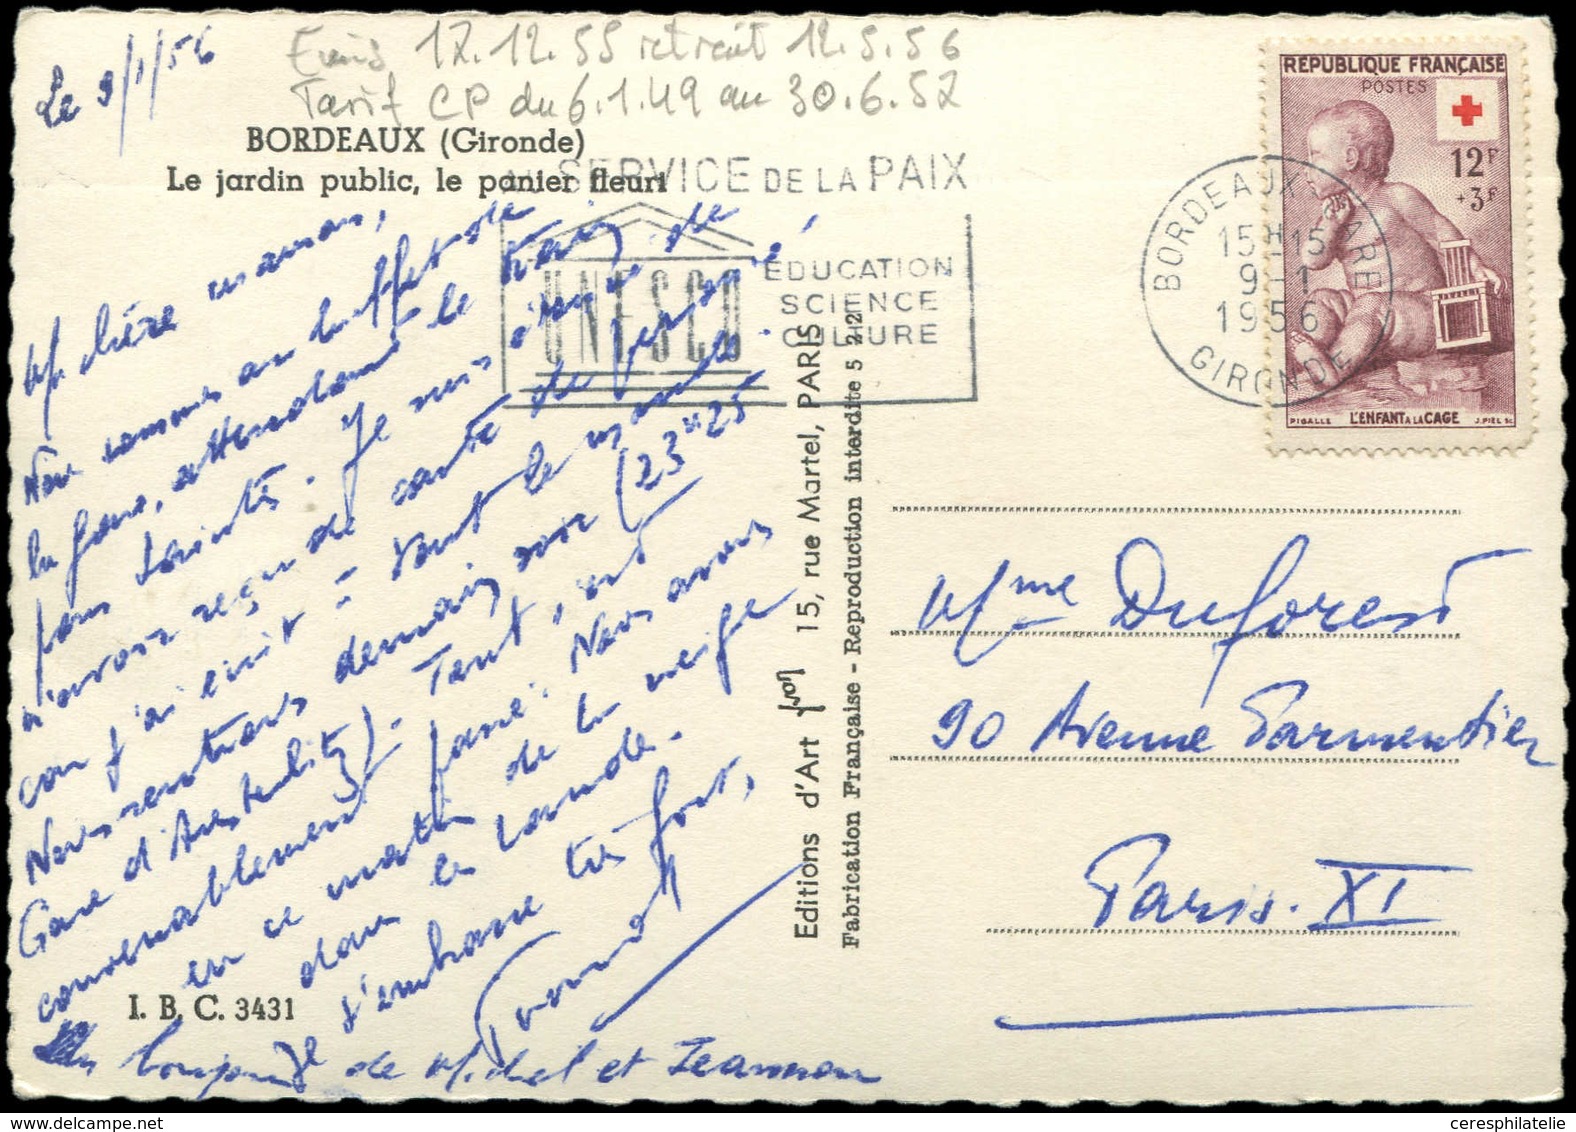 Le 9/1/56
Emis 17.12.55 retrait 12.5.56
Tarif CP du 6.1.49 au 30.6.57
BORDEAUX (Gironde)
Le jardin public, le panier fleuri
AU SERVICE DE LA PAIX
UNESCO
EDUCATION
SCIENCE
CULTURE
RÉPUBLIQUE FRANÇAISE
POSTES
12F
+3F
PIGALLE L'ENFANT A LA CAGE J. PIEL SC
BORDEAUX GARE
15H15
9-1
1956
GIRONDE
M. chère maman,
Nous sommes au buffet de
la gare, attendant le train
pour Saintes. Je suis
n'avoir reçu de carte de personne
car j'ai écrit à tout le monde.
Nous rentrons demain soir (23H25
Gare d'Austerlitz). Tout s'est
convenablement passé. Nous avons
eu ce matin de la neige
dans les Landes.
J'embrasse très fort,
de Michel et Jeannou
I. B. C. 3431
Editions d'Art Yvon 15, rue Martel, PARIS
Fabrication Française - Reproduction interdite 5 22
Mme Duforest
90 Avenue Parmentier
Paris. XI
ceresphilatelie